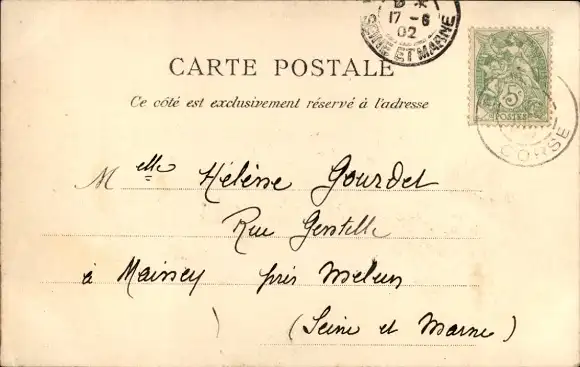 17 - 6
02
SEINE ET MARNE
CARTE POSTALE
Ce côté est exclusivement réservé à l'adresse
5c
POSTES
CORSE
Melle Hélène Gourdet
Rue Gentille
à Maincy près Melun
(Seine et Marne)